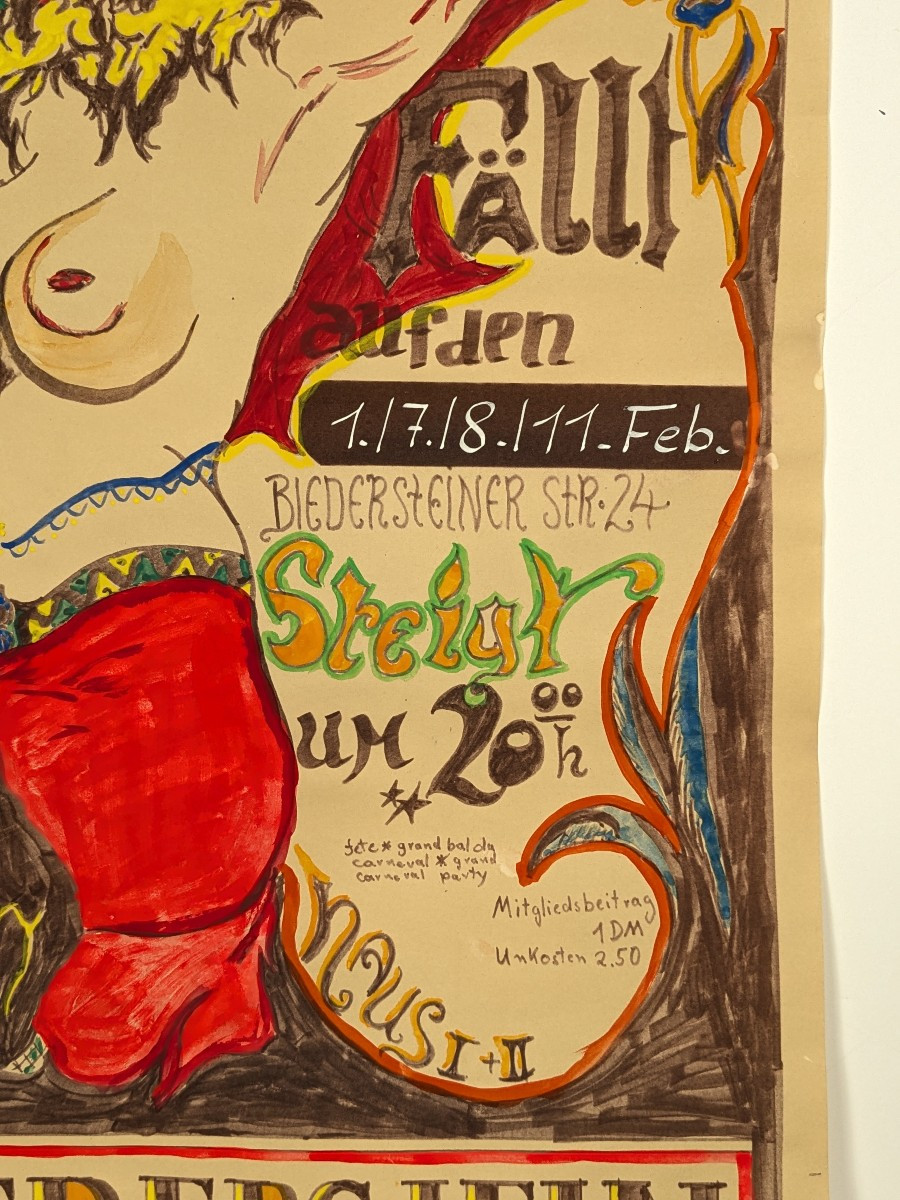 Fällt
aufden
1./7./8./11.Feb.
BIEDERSTEINER STR.24
Steigt
UM 20ºº h
fete * grand bal du
carneval * grand
carneval party
Mitgliedsbeitrag
1 DM
Unkosten 2.50
HAUS I+II